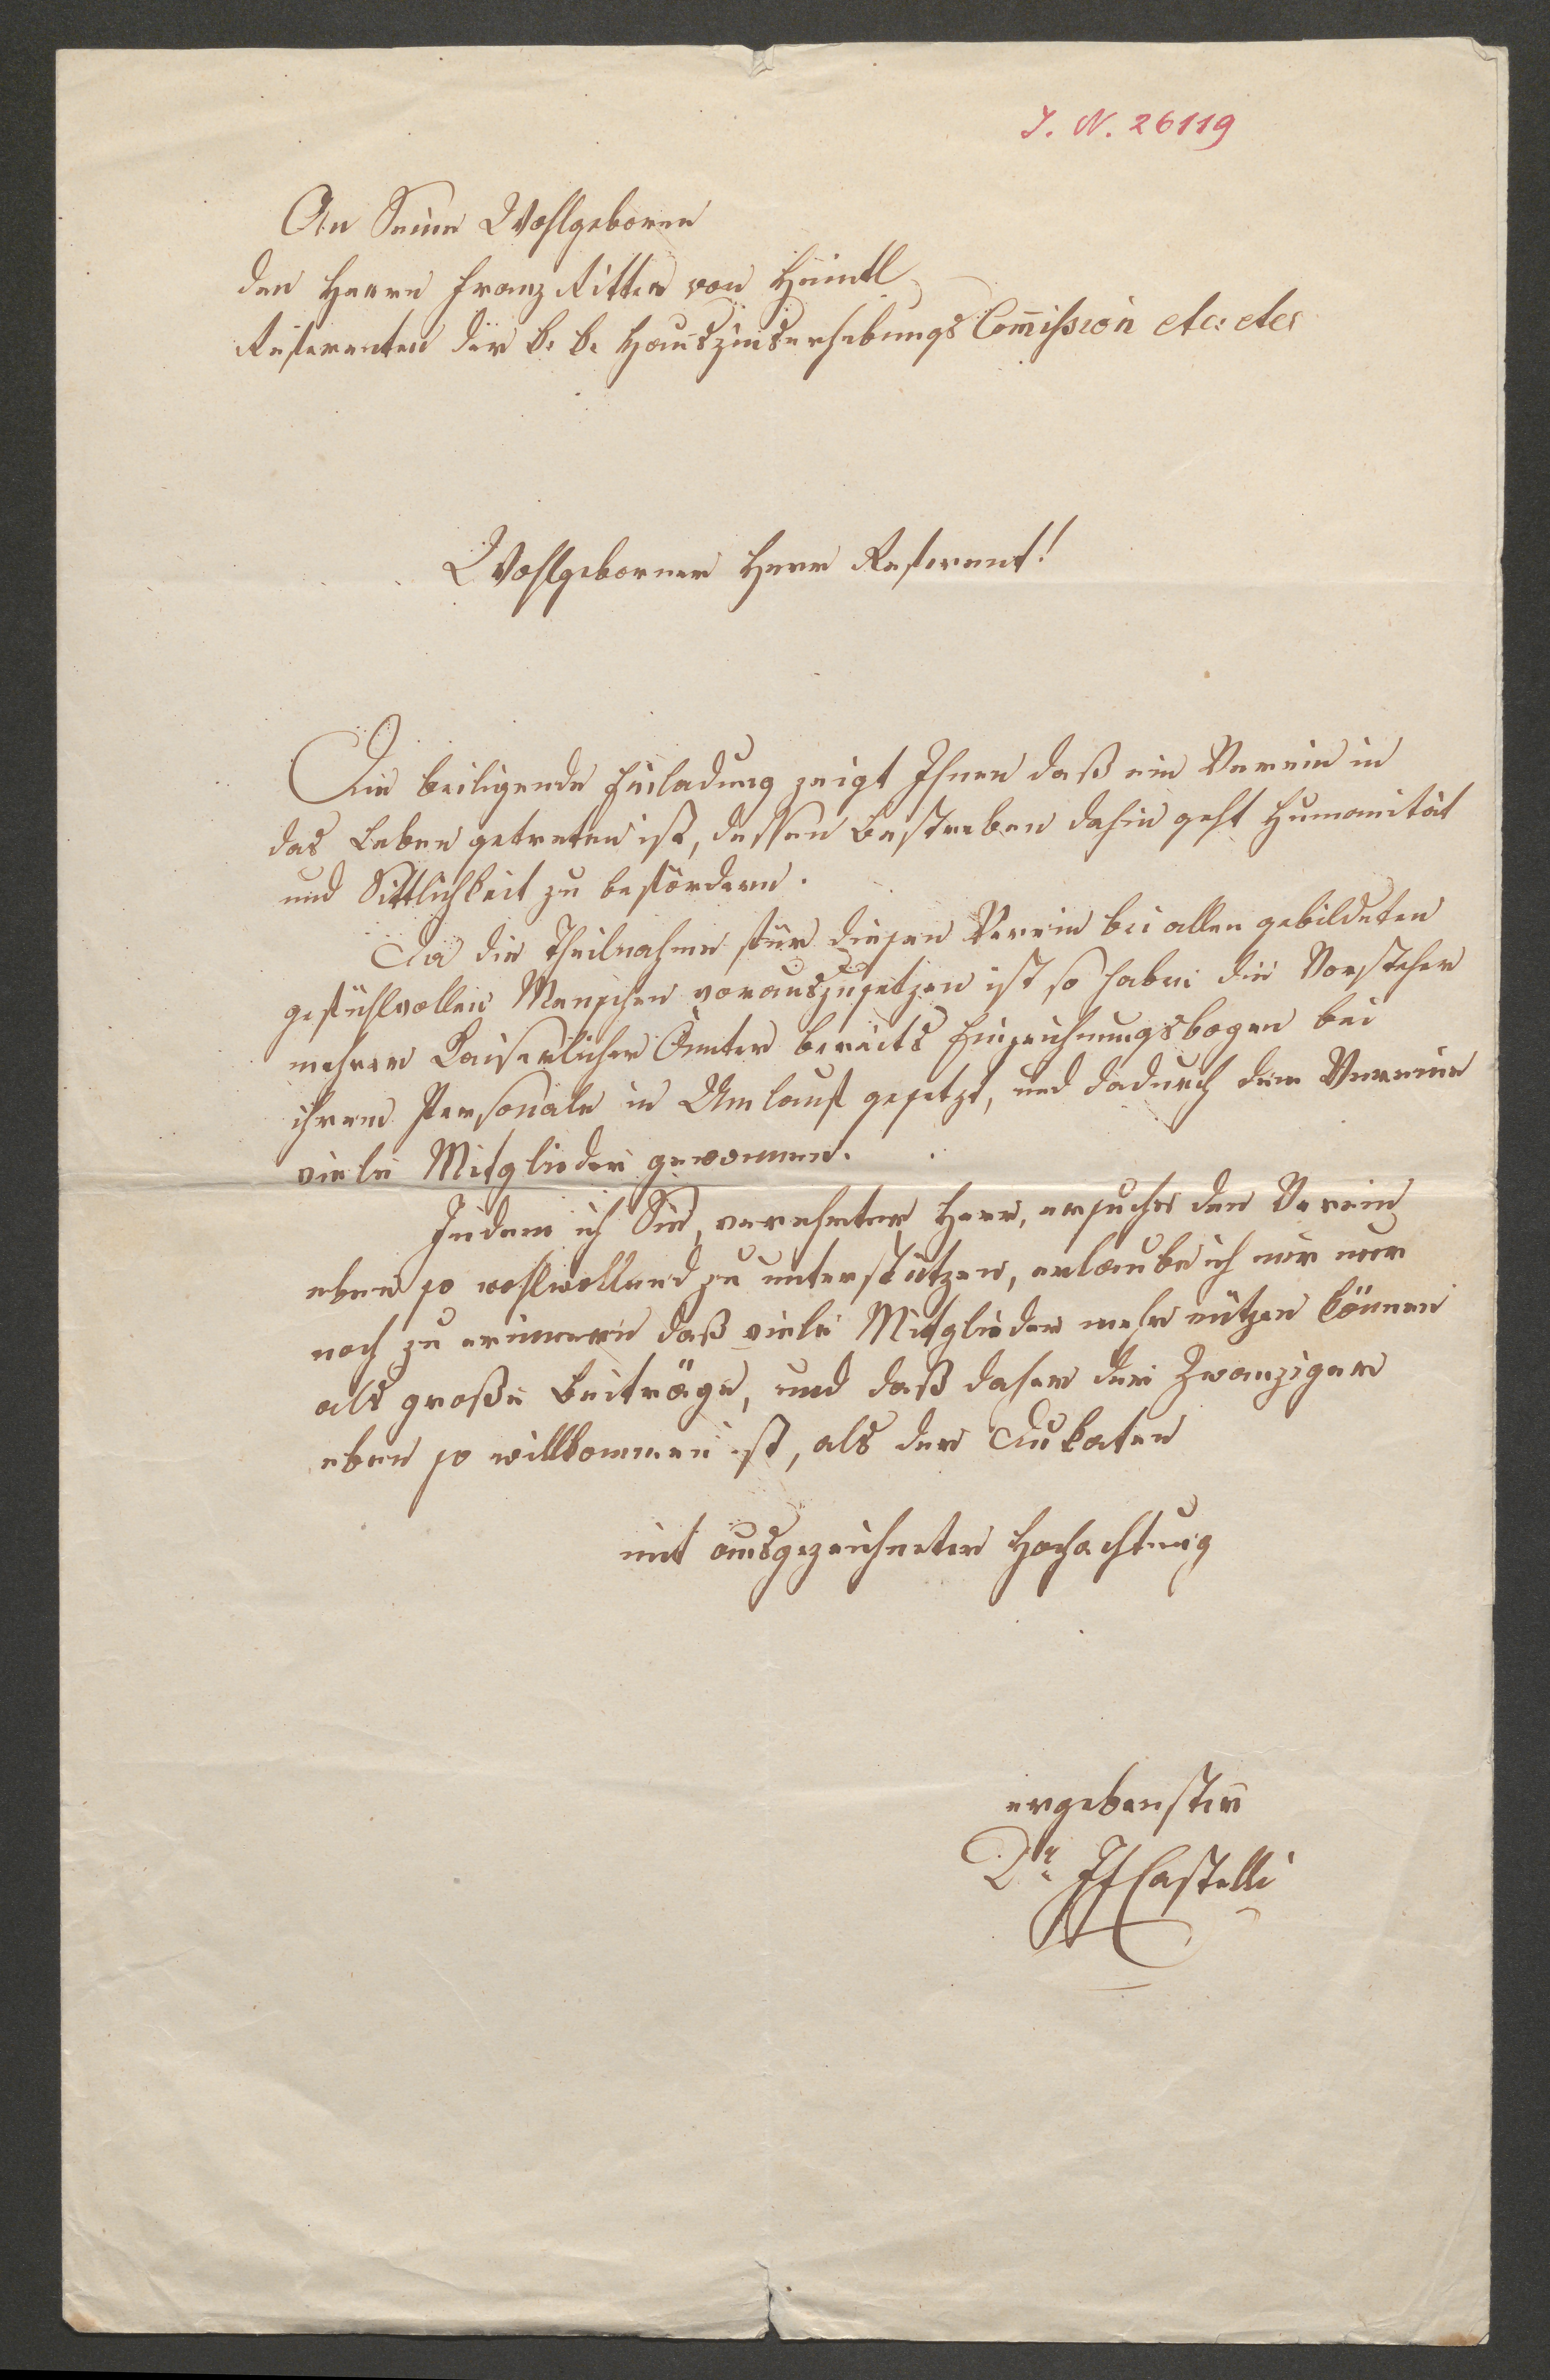 I. N. 26119
An Seine Wohlgeboren
den Herrn Franz Ritter von Heintl
Referenten der k. k. Hauszinserhebungs Com̅ission etc: etc:
Wohlgeborner Herr Referent!
Die beiligende Einladung zeigt Ihnen daß ein Verein in
das Leben getreten ist, dessen Bestreben dahin geht Humanität
und Sittlichkeit zu befördern.
Da die Theilnahme für diesen Verein bei allen gebildeten
gefühlvollen Menschen vorauszusetzen ist so haben die Vorsteher
mehrer Kaiserlicher Ämter bereits Einzeichnungsbogen bei
ihrem Personale in Umlauf gesetzt, und dadurch dem Vereine
viele Mitglieder gewonnen.
Indem ich Sie, verehrter Herr, ersuche den Verein
eben so wohlwollend zu unterstützen, erlaube ich mir nur
noch zu erinnern daß viele Mitglieder mehr nützen können
als große Beiträge, und daß daher der Zwanziger
eben so willkommen ist, als der Dukaten
mit ausgezeichneter Hochachtung
ergebenster
Dr. IFCastelli